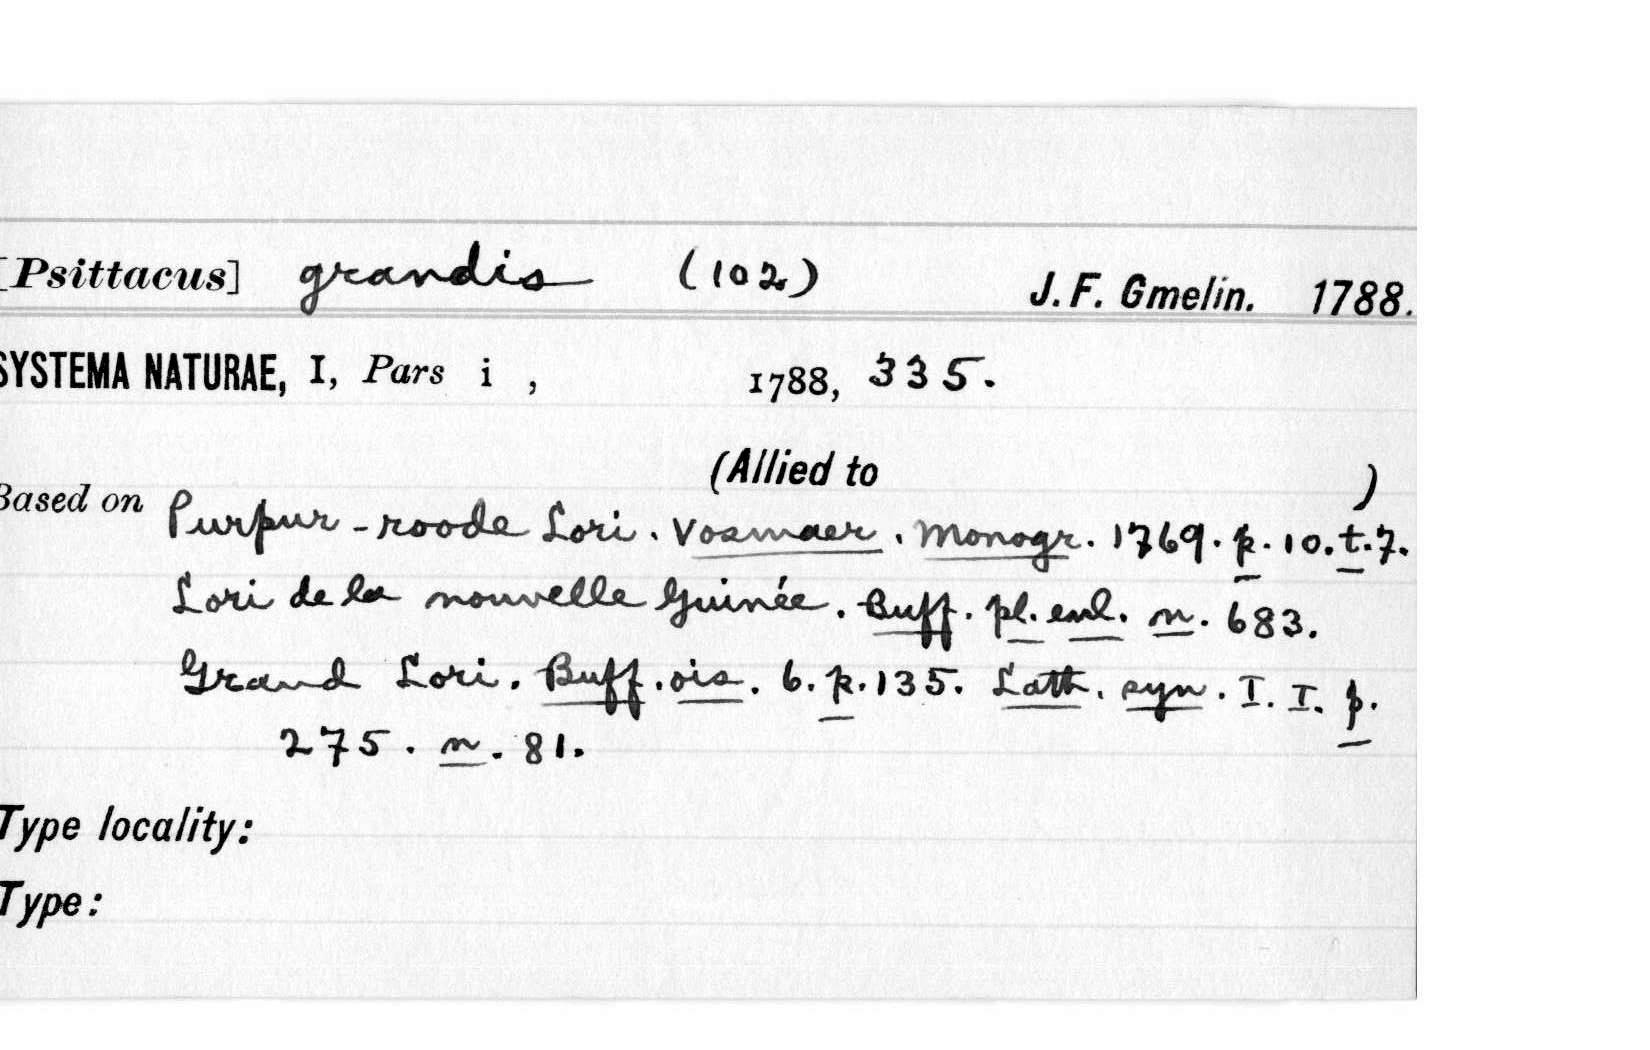 [Psittacus] grandis (102) J. F. Gmelin. 1788.
SYSTEMA NATURAE, I, Pars i , 1788, 335.
(Allied to )
Based on Purpur-roode Lori. Vosmaer. Monogr. 1769. p. 10. t. 7.
Lori de la nouvelle Guinée. Buff. pl. enl. n. 683.
Grand Lori. Buff. ois. 6. p. 135. Lath. syn. I. I. p.
275. n. 81.
Type locality:
Type: